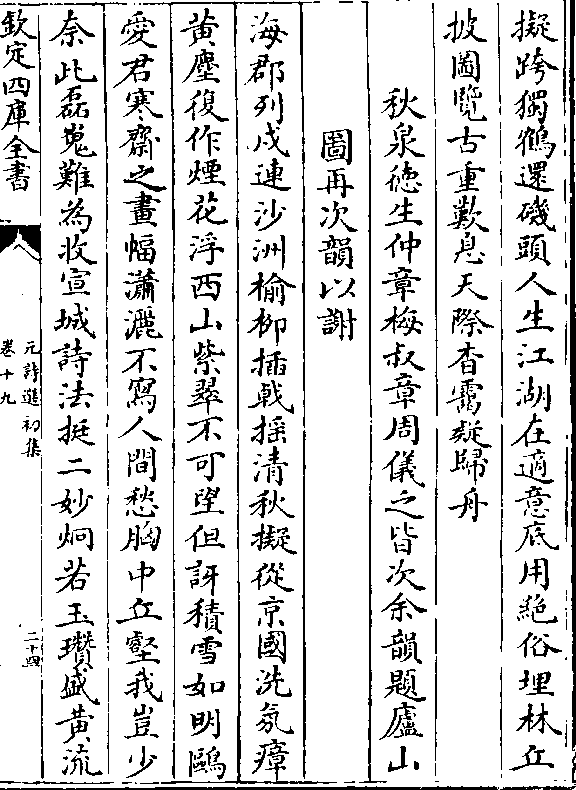 擬跨獨鶴還磯頭人生江湖在適意底用絶俗埋林丘
披圖覽古重歎息天際杳靄凝歸舟
秋泉徳生仲章梅叔章周儀之皆次余韻題廬山
圖再次韻以謝
海郡列戍連沙洲榆栁插㦸揺清秋擬從京國洗氛瘴
黄塵復作煙花浮西山紫翠不可望但訝積雪如明鷗
愛君寒齋之畫幅瀟灑不寫人間愁胸中丘壑我豈少
奈此磊嵬難為收宣城詩法挺二妙炯若玉瓚盛黄流
欽定四庫全書
元詩選初集
卷十九
二十四